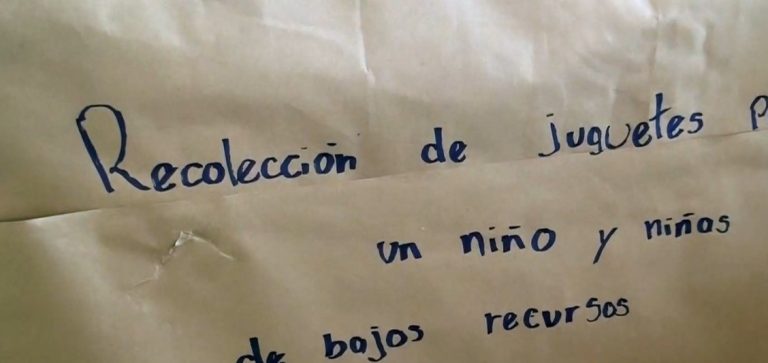 Recolección de juguetes p
un niño y niñas
de bajos recursos